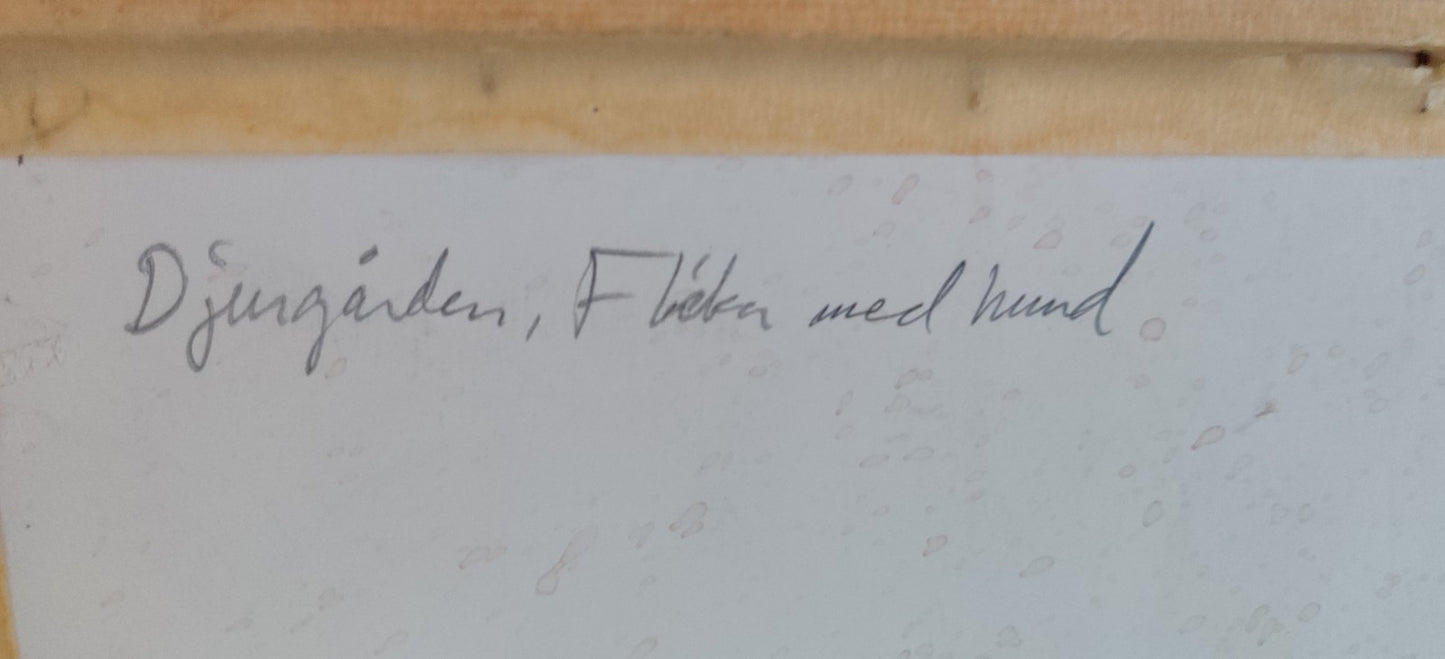 Djurgården, Flicka med hund